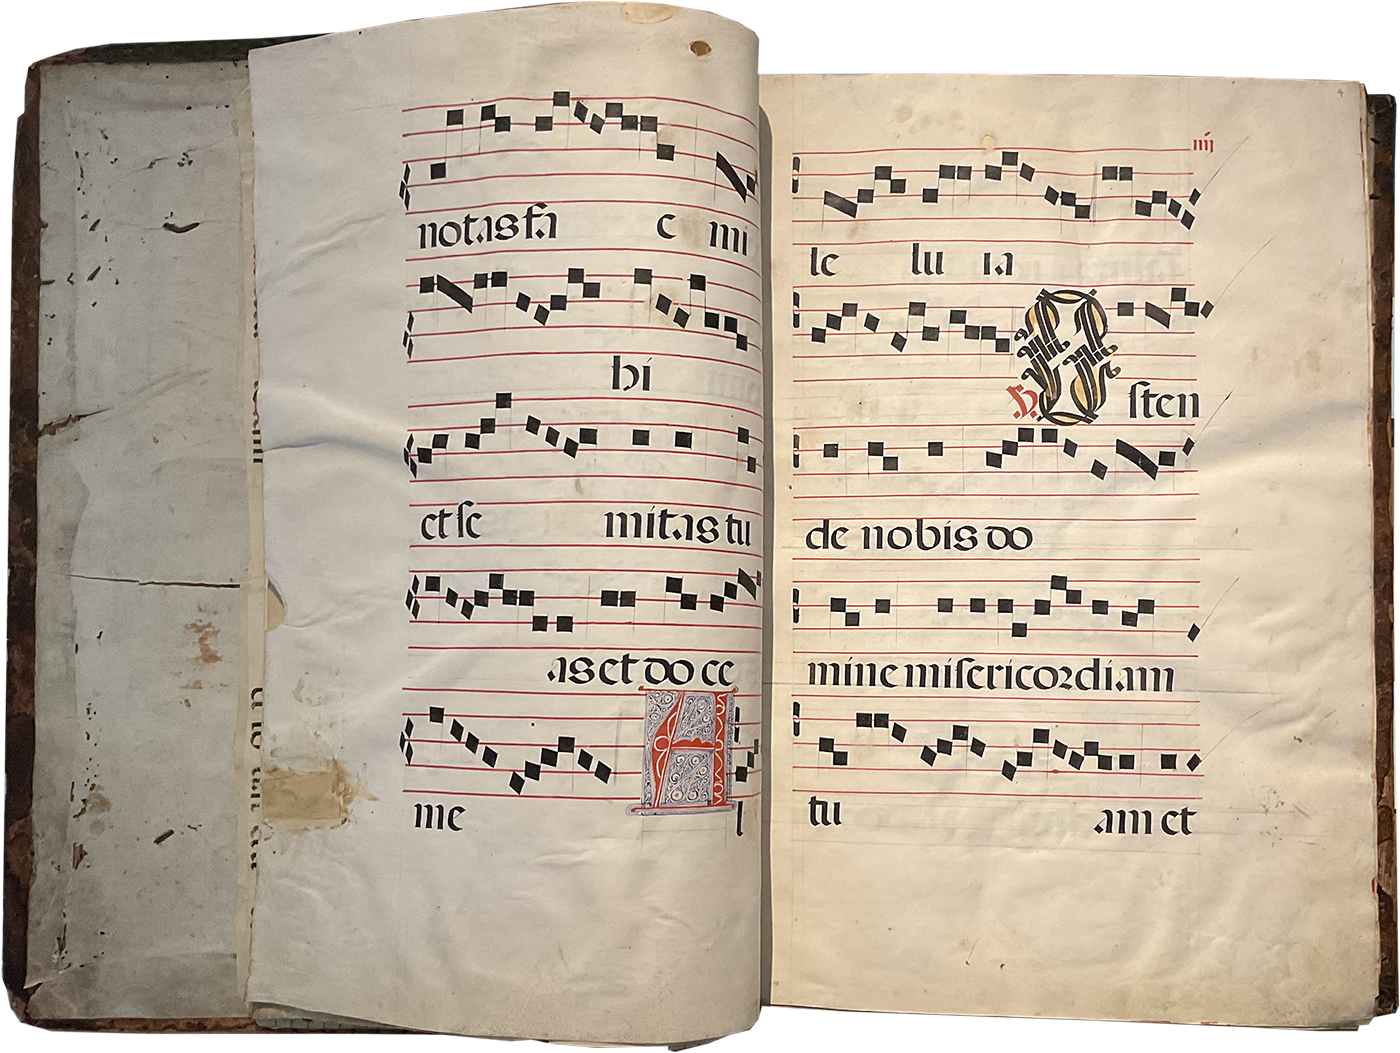 notas fa c mi
hi
et se mitas tu
as et do ce
me Al
4
iiij
le lu ia
℣. Osten
de nobis do
mine misericordiam
tu am et